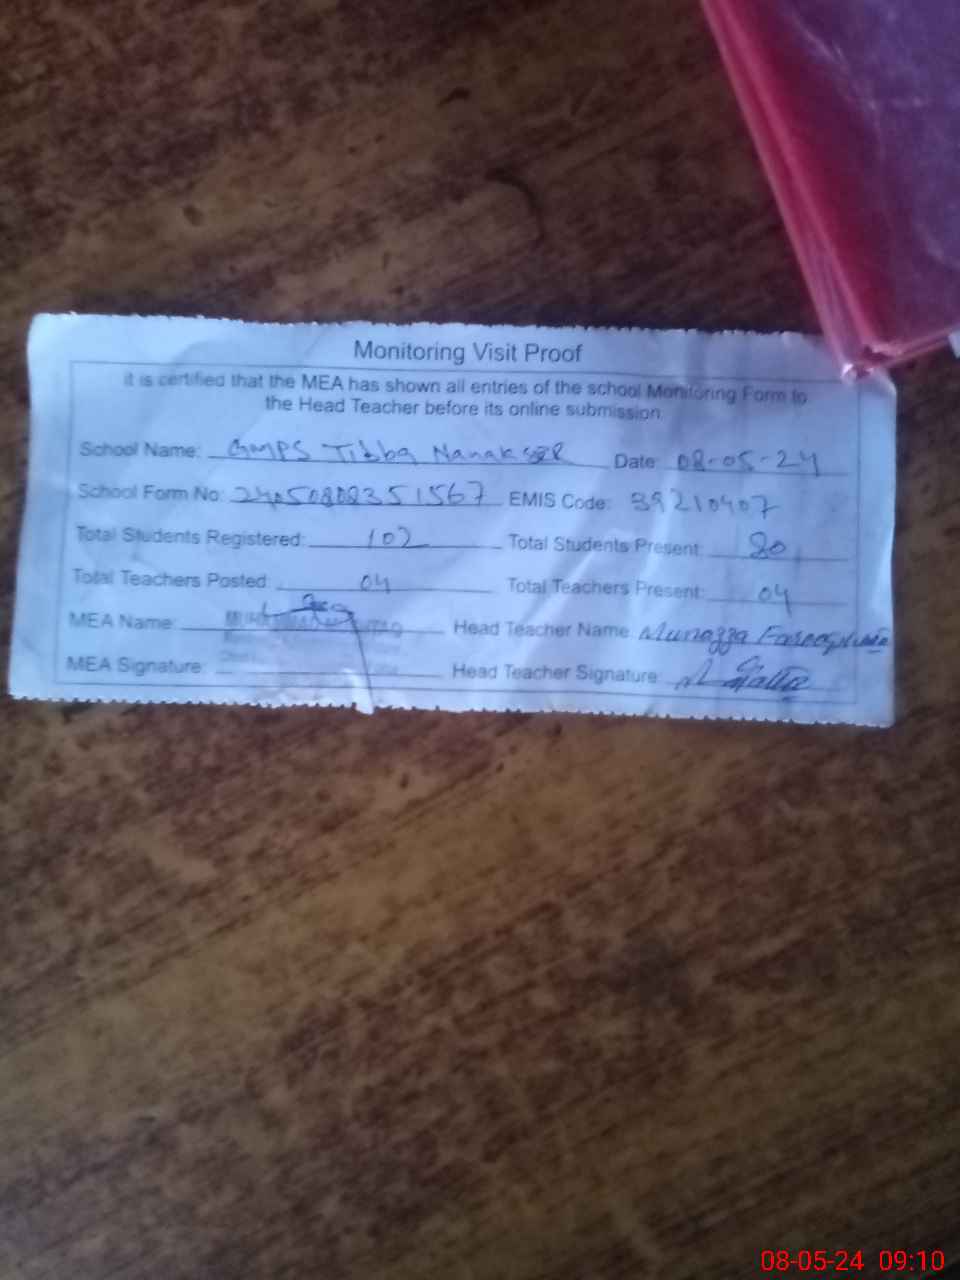 Monitoring Visit Proof
it is certified that the MEA has shown all entries of the school Monitoring Form to
the Head Teacher before its online submission
School Name: GMPS Tibba Nanaksar Date: 08-05-24
School Form No: EMIS Code: 39210407
Total Students Registered: 102 Total Students Present: 80
Total Teachers Posted: 04 Total Teachers Present: 04
MEA Name: Head Teacher Name: Munazza
MEA Signature: Head Teacher Signature:
08-05-24 09:10